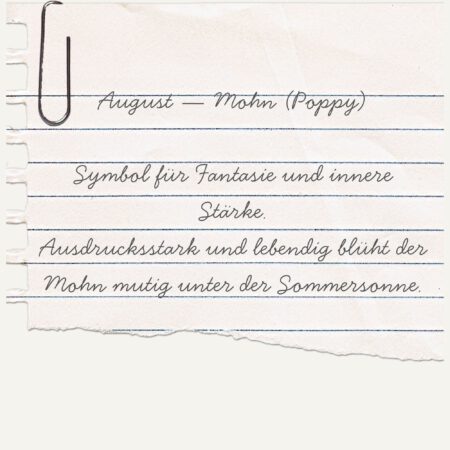 August — Mohn (Poppy)
Symbol für Fantasie und innere
Stärke.
Ausdrucksstark und lebendig blüht der
Mohn mutig unter der Sommersonne.